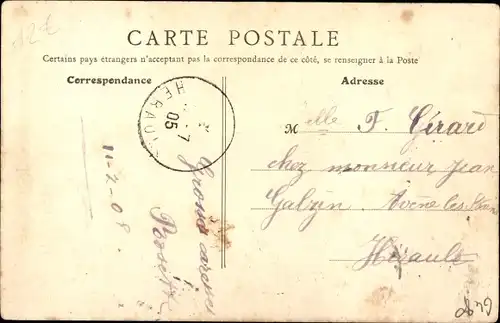 12€
CARTE POSTALE
Certains pays étrangers n'acceptant pas la correspondance de ce côté, se renseigner à la Poste
Correspondance
Adresse
HERAULT
7
05
11-2-08
Melle F. Girard
chez monsieur Jean
Galzin, Avène les Bains
Hérault